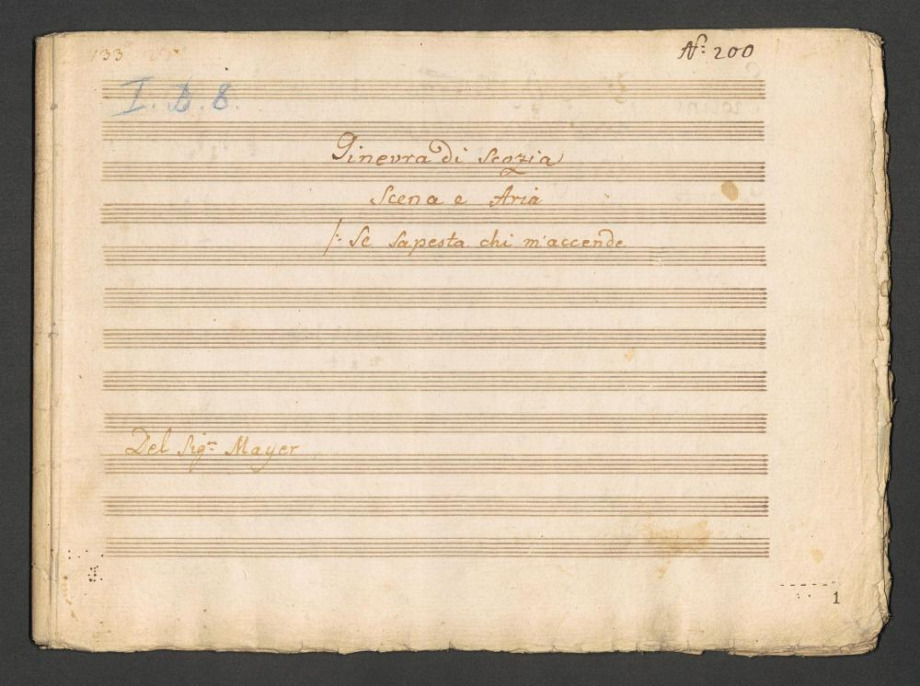 133
Nº: 200
I. D. 8.
Ginevra di Scozia
Scena e Aria
/: Se Sapesta chi m'accende
Del Sigre Mayer
1